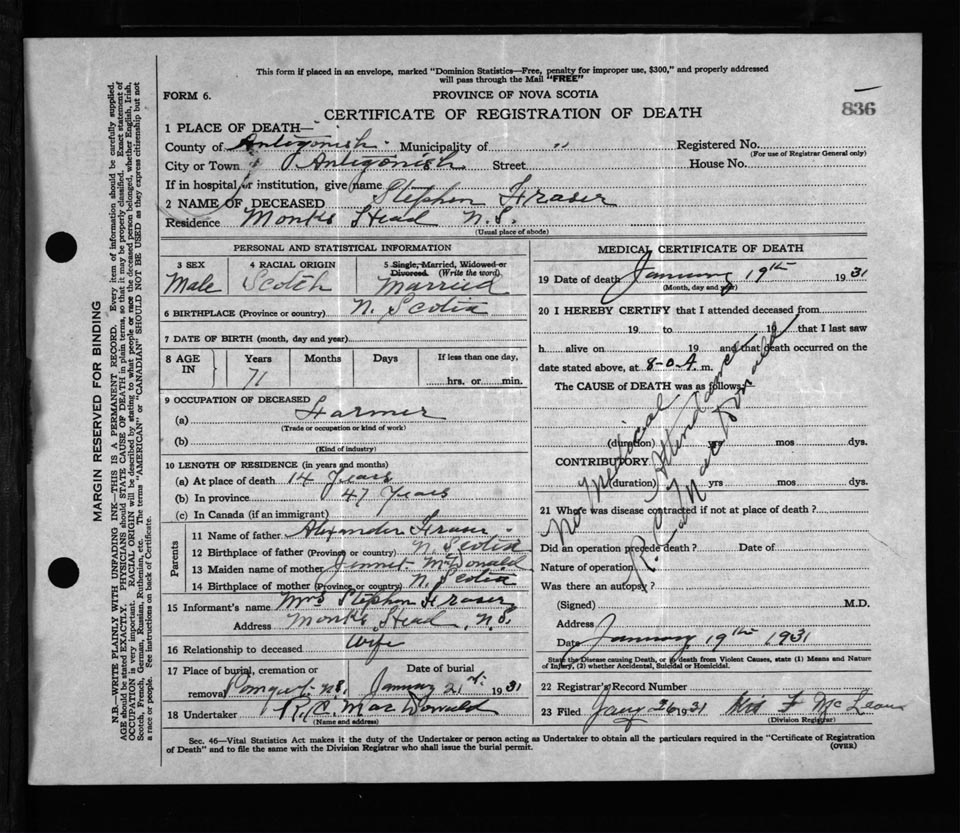 This form if placed in an envelope, marked "Dominion Statistics—Free, penalty for improper use, $300," and properly addressed
will pass through the Mail "FREE"
FORM 6.
PROVINCE OF NOVA SCOTIA
836
CERTIFICATE OF REGISTRATION OF DEATH
1 PLACE OF DEATH—
County of Antigonish Municipality of " Registered No.
(For use of Registrar General only)
City or Town Antigonish Street House No.
If in hospital or institution, give name
2 NAME OF DECEASED Stephen Fraser
Residence Monks Head N.S.
(Usual place of abode)
PERSONAL AND STATISTICAL INFORMATION
3 SEX Male
4 RACIAL ORIGIN Scotch
5 Single, Married, Widowed or Divorced. (Write the word) Married
6 BIRTHPLACE (Province or country) N. Scotia
7 DATE OF BIRTH (month, day and year)
8 AGE IN Years Months Days If less than one day,
71 hrs. or min.
9 OCCUPATION OF DECEASED
(a) Farmer
(Trade or occupation or kind of work)
(b)
(Kind of industry)
10 LENGTH OF RESIDENCE (in years and months)
(a) At place of death 14 Years
(b) In province 47 Years
(c) In Canada (if an immigrant)
Parents
11 Name of father Alexander Fraser
12 Birthplace of father (Province or country) N Scotia
13 Maiden name of mother Jennet McDonald
14 Birthplace of mother (Province or country) N. Scotia
15 Informant's name Mrs Stephen Fraser
Address Monks Head, N.S.
16 Relationship to deceased Wife
17 Place of burial, cremation or removal Pomquet N.S. Date of burial January 21st 1931
18 Undertaker R. C. MacDonald
(Name and address)
MEDICAL CERTIFICATE OF DEATH
19 Date of death January 19th 1931
(Month, day and year)
20 I HEREBY CERTIFY that I attended deceased from
19 to 19 that I last saw
h alive on 19 and that death occurred on the
date stated above, at 8-0 A. m.
The CAUSE of DEATH was as follows:
No Medical Attendance
R. C. MacDonald
(duration) yrs mos dys.
CONTRIBUTORY
(duration) yrs mos dys.
21 Where was disease contracted if not at place of death?
Did an operation precede death? Date of
Nature of operation
Was there an autopsy?
(Signed) M.D.
Address
Date January 19th 1931
State the Disease causing Death, or in death from Violent Causes, state (1) Means and Nature
of Injury, (2) whether Accidental, Suicidal or Homicidal.
22 Registrar's Record Number
23 Filed Jany 26 1931 F McLean
(Division Registrar)
Sec. 46—Vital Statistics Act makes it the duty of the Undertaker or person acting as Undertaker to obtain all the particulars required in the "Certificate of Registration
of Death" and to file the same with the Division Registrar who shall issue the burial permit.
(OVER)
MARGIN RESERVED FOR BINDING
N.B.—WRITE PLAINLY WITH UNFADING INK—THIS IS A PERMANENT RECORD. Every item of information should be carefully supplied.
AGE should be stated EXACTLY. PHYSICIANS should STATE CAUSE OF DEATH in plain terms, so that it may be properly classified. Exact statement of
OCCUPATION is very important. RACIAL ORIGIN will be described by stating to what people or race the deceased person belonged, whether English, Irish,
Scotch, French, German, Russian, Ruthenian, etc. The terms "AMERICAN" or "CANADIAN" SHOULD NOT BE USED as they express citizenship but not
a race or people. See instructions on back of Certificate.